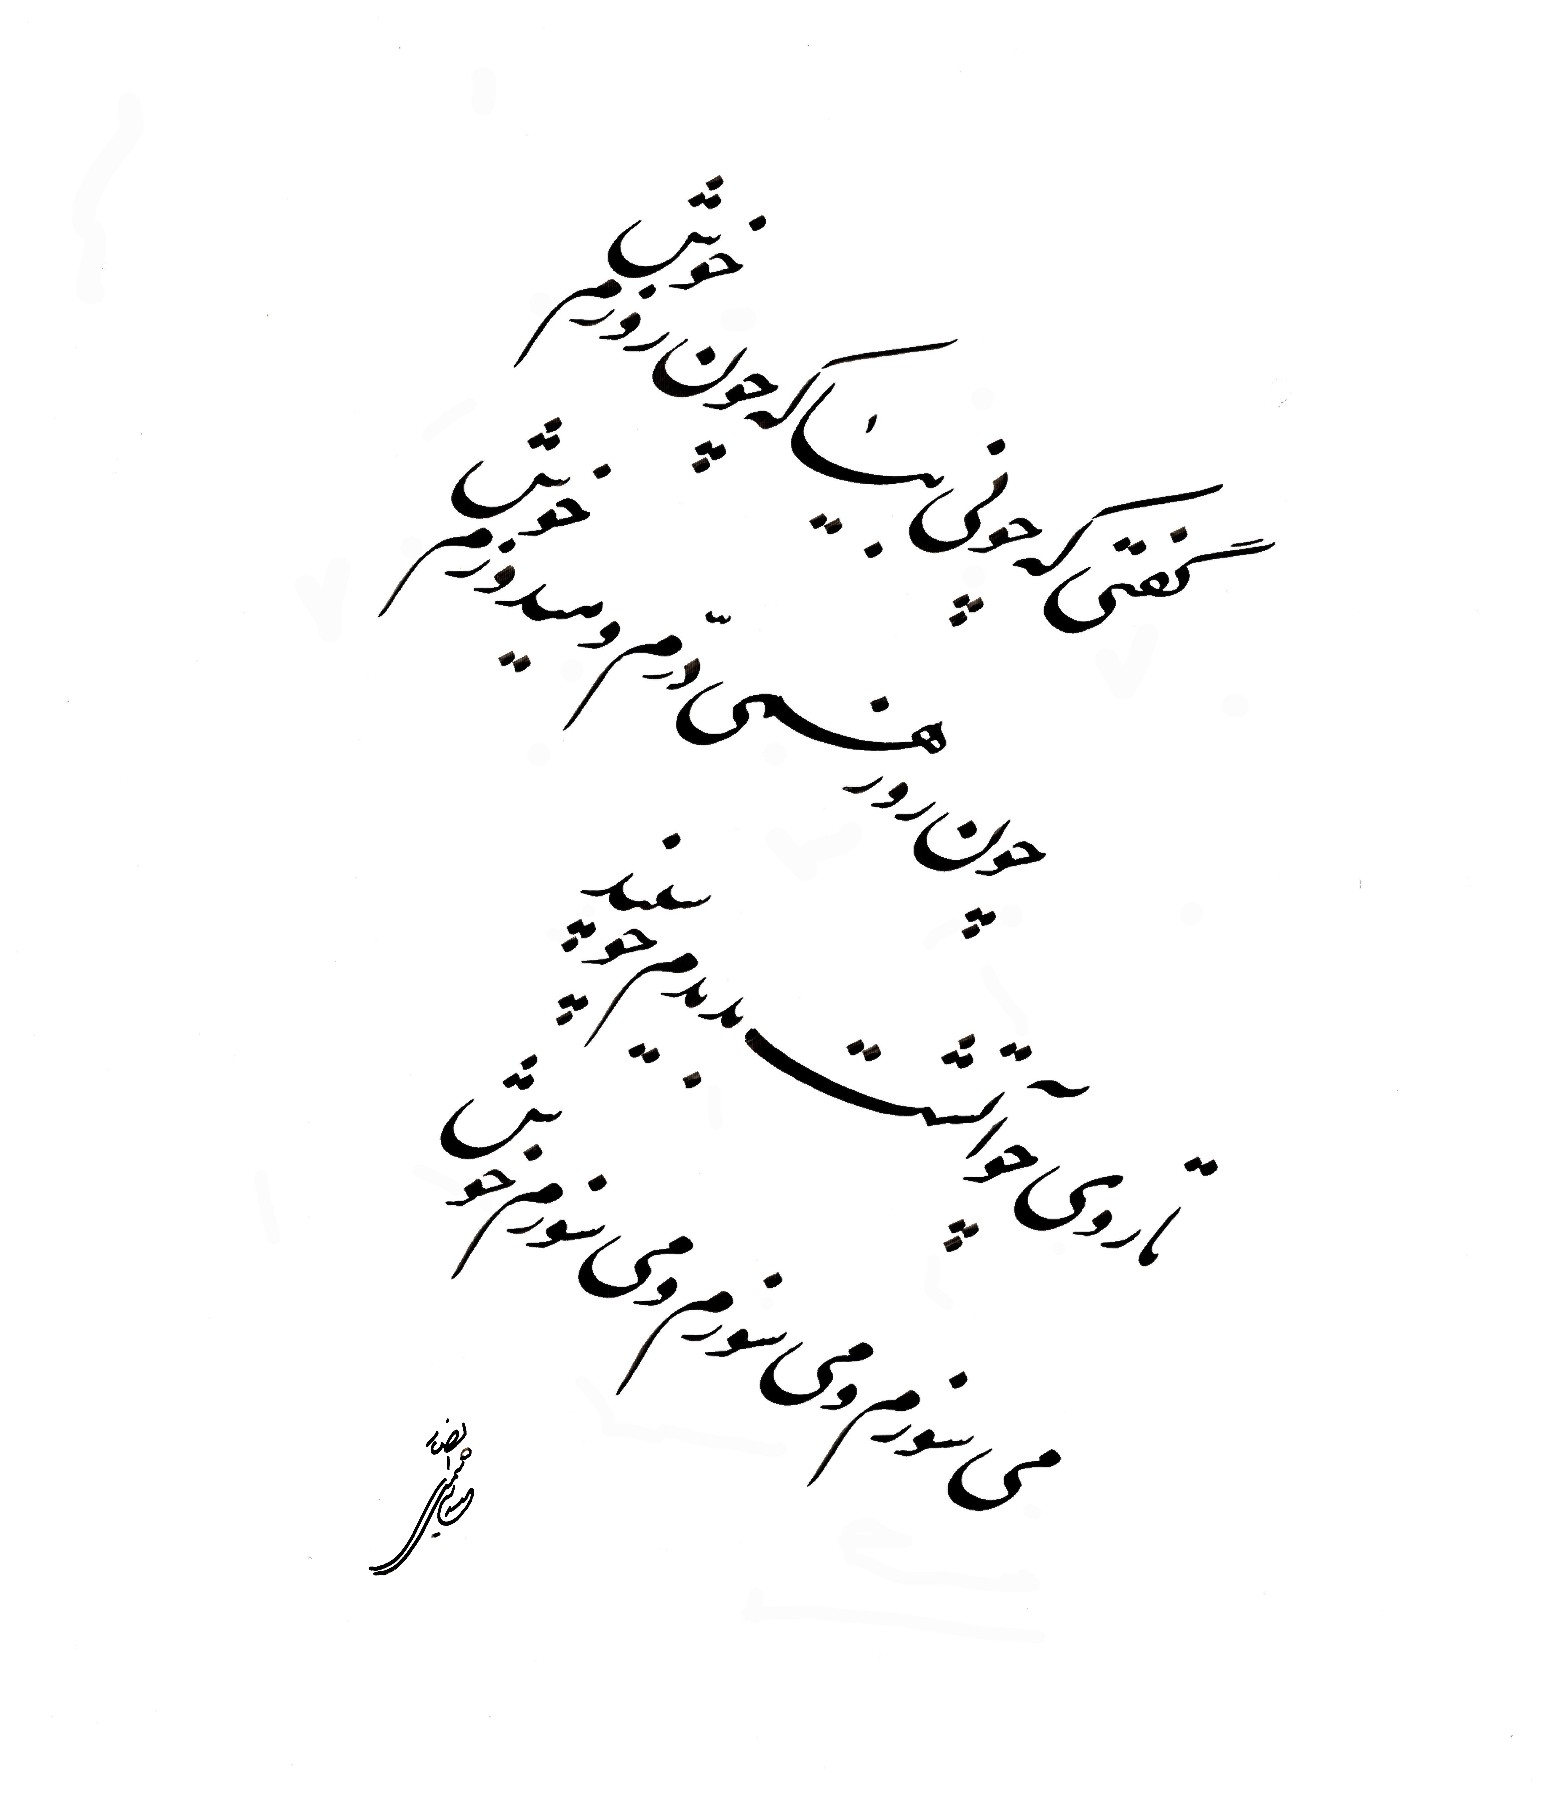 گفتی که چونی بیا که چون روزم خوش
چون روز همی درّم و میدوزم خوش
تا روی چو آتشت بدیدم چو سپند
می سوزم و می سوزم و می سوزم خوش